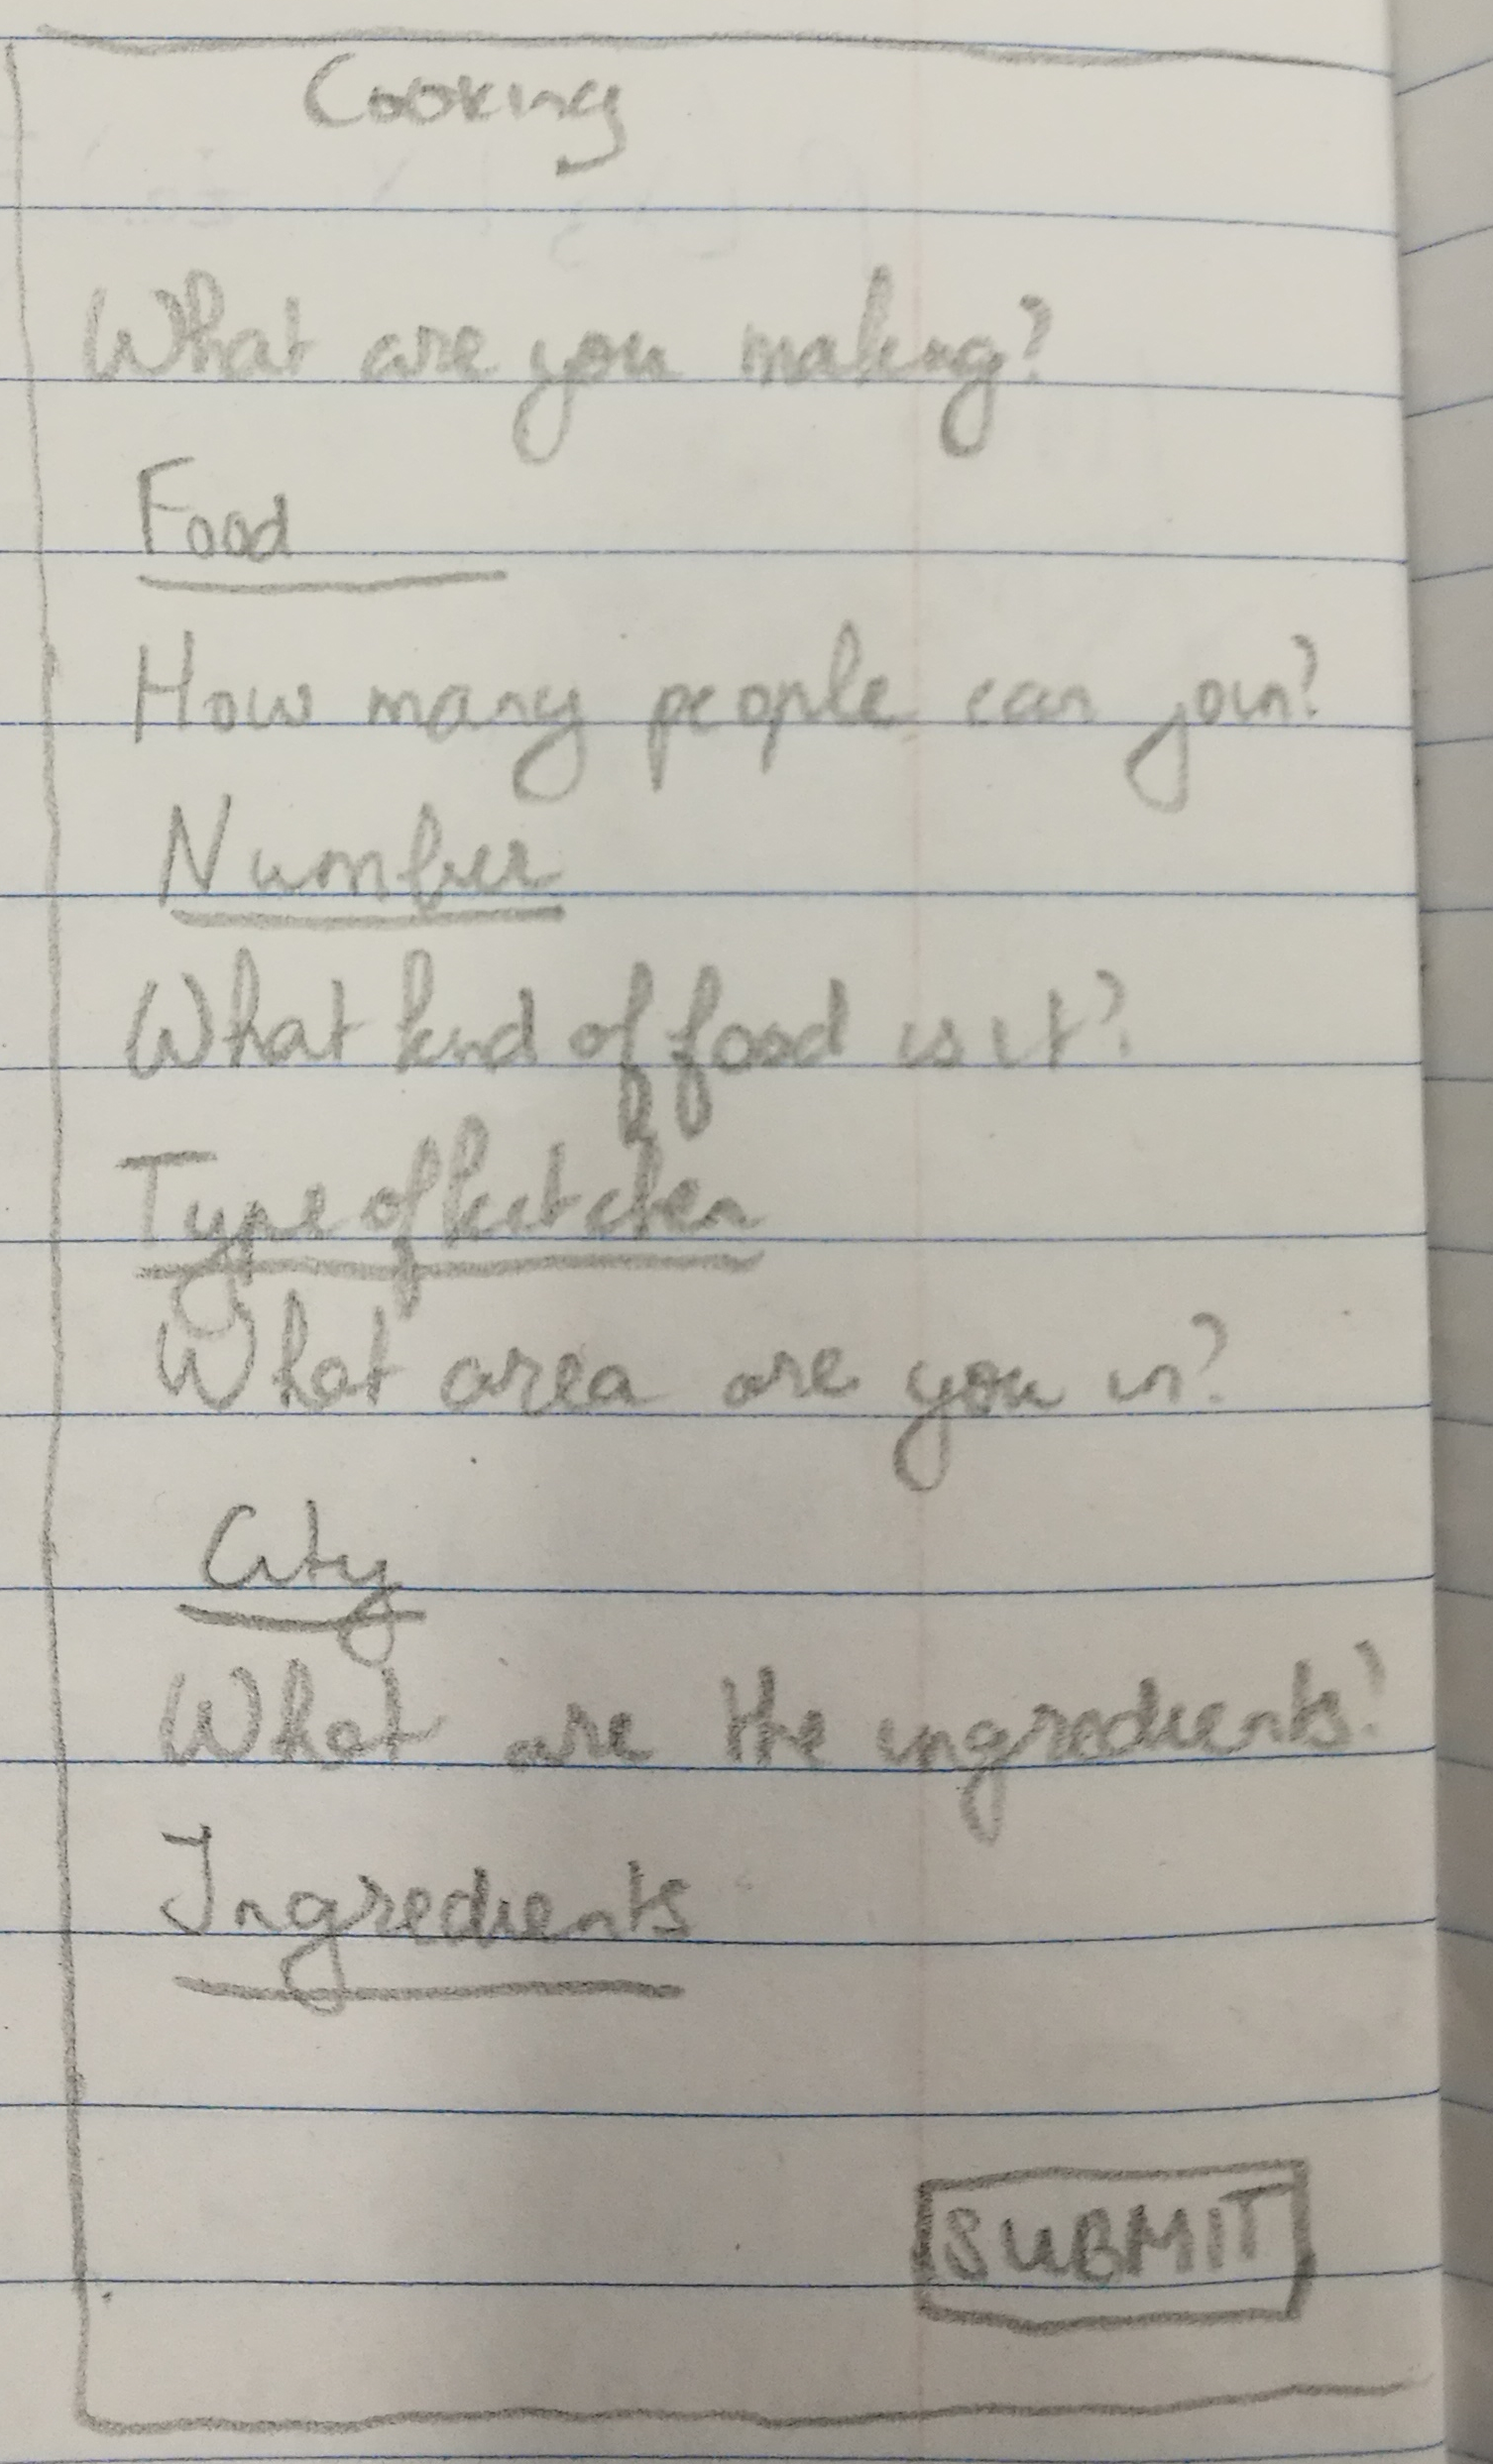 Cooking
What are you making?
Food
How many people can join?
Number
What kind of food is it?
Type of kitchen
What area are you in?
City
What are the ingredients?
Ingredients
SUBMIT